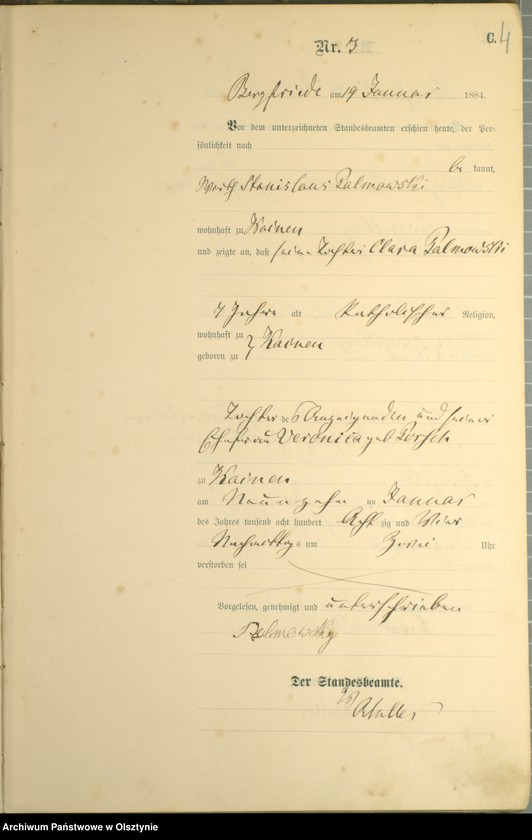 C. 4
Nr. 3
Bergfriede am 19 Januar 1884.
Vor dem unterzeichneten Standesbeamten erschien heute, der Per-
sönlichkeit nach
be kannt,
Wirth Stanislaus Palmowski
wohnhaft zu Kainen
und zeigte an, daß seine Tochter Clara Palmowski
7 Jahre alt katholischer Religion,
wohnhaft zu
geboren zu } Kainen
Tochter des Anzeigenden und seiner
Ehefrau Veronica geb
zu Kainen
am Neunzehn ten Januar
des Jahres tausend acht hundert Acht zig und Vier
Nachmittags um Zwei Uhr
verstorben sei
Vorgelesen, genehmigt und unterschrieben
Der Standesbeamte.
Archiwum Państwowe w Olsztynie